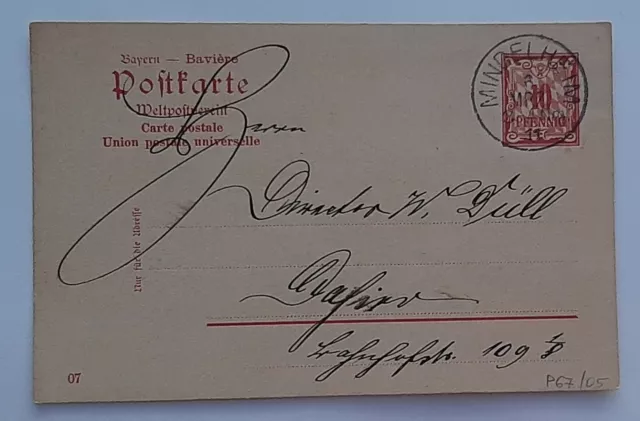 Bayern — Bavière
Postkarte
Weltpostverein
Carte postale
Union postale universelle
Herrn
Director W. Düll
Dahier
Bahnhofstr. 109
Nur für die Adresse
MINDELHEIM
10
PFENNIG
07
P67/05